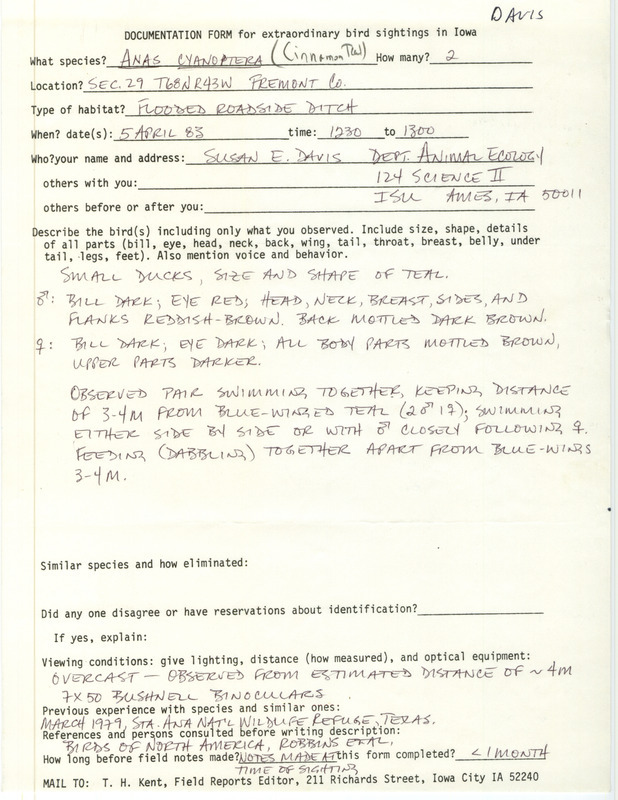 DAVIS
DOCUMENTATION FORM for extraordinary bird sightings in Iowa
What species? ANAS CYANOPTERA (Cinnamon Teal) How many? 2
Location? SEC. 29 T68N R43W FREMONT CO.
Type of habitat? FLOODED ROADSIDE DITCH
When? date(s): 5 APRIL 83 time: 1230 to 1300
Who?your name and address: SUSAN E. DAVIS DEPT. ANIMAL ECOLOGY
others with you: 124 SCIENCE II
ISU AMES, IA 50011
others before or after you:
Describe the bird(s) including only what you observed. Include size, shape, details
of all parts (bill, eye, head, neck, back, wing, tail, throat, breast, belly, under
tail, legs, feet). Also mention voice and behavior.
SMALL DUCKS, SIZE AND SHAPE OF TEAL.
♂: BILL DARK; EYE RED; HEAD, NECK, BREAST, SIDES, AND
FLANKS REDDISH-BROWN. BACK MOTTLED DARK BROWN.
♀: BILL DARK; EYE DARK; ALL BODY PARTS MOTTLED BROWN,
UPPER PARTS DARKER.
OBSERVED PAIR SWIMMING TOGETHER, KEEPING DISTANCE
OF 3-4M FROM BLUE-WINGED TEAL (2♂ 1♀); SWIMMING
EITHER SIDE BY SIDE OR WITH ♂ CLOSELY FOLLOWING ♀.
FEEDING (DABBLING) TOGETHER APART FROM BLUE-WINGS
3-4 M.
Similar species and how eliminated:
Did any one disagree or have reservations about identification?
If yes, explain:
Viewing conditions: give lighting, distance (how measured), and optical equipment:
OVERCAST — OBSERVED FROM ESTIMATED DISTANCE OF ~ 4M
7X50 BUSHNELL BINOCULARS.
Previous experience with species and similar ones:
MARCH 1979, STA. ANA NAT'L WILDLIFE REFUGE, TEXAS.
References and persons consulted before writing description:
BIRDS OF NORTH AMERICA, ROBBINS ET AL.
How long before field notes made? NOTES MADE AT this form completed? < 1 MONTH
TIME OF SIGHTING
MAIL TO: T. H. Kent, Field Reports Editor, 211 Richards Street, Iowa City IA 52240